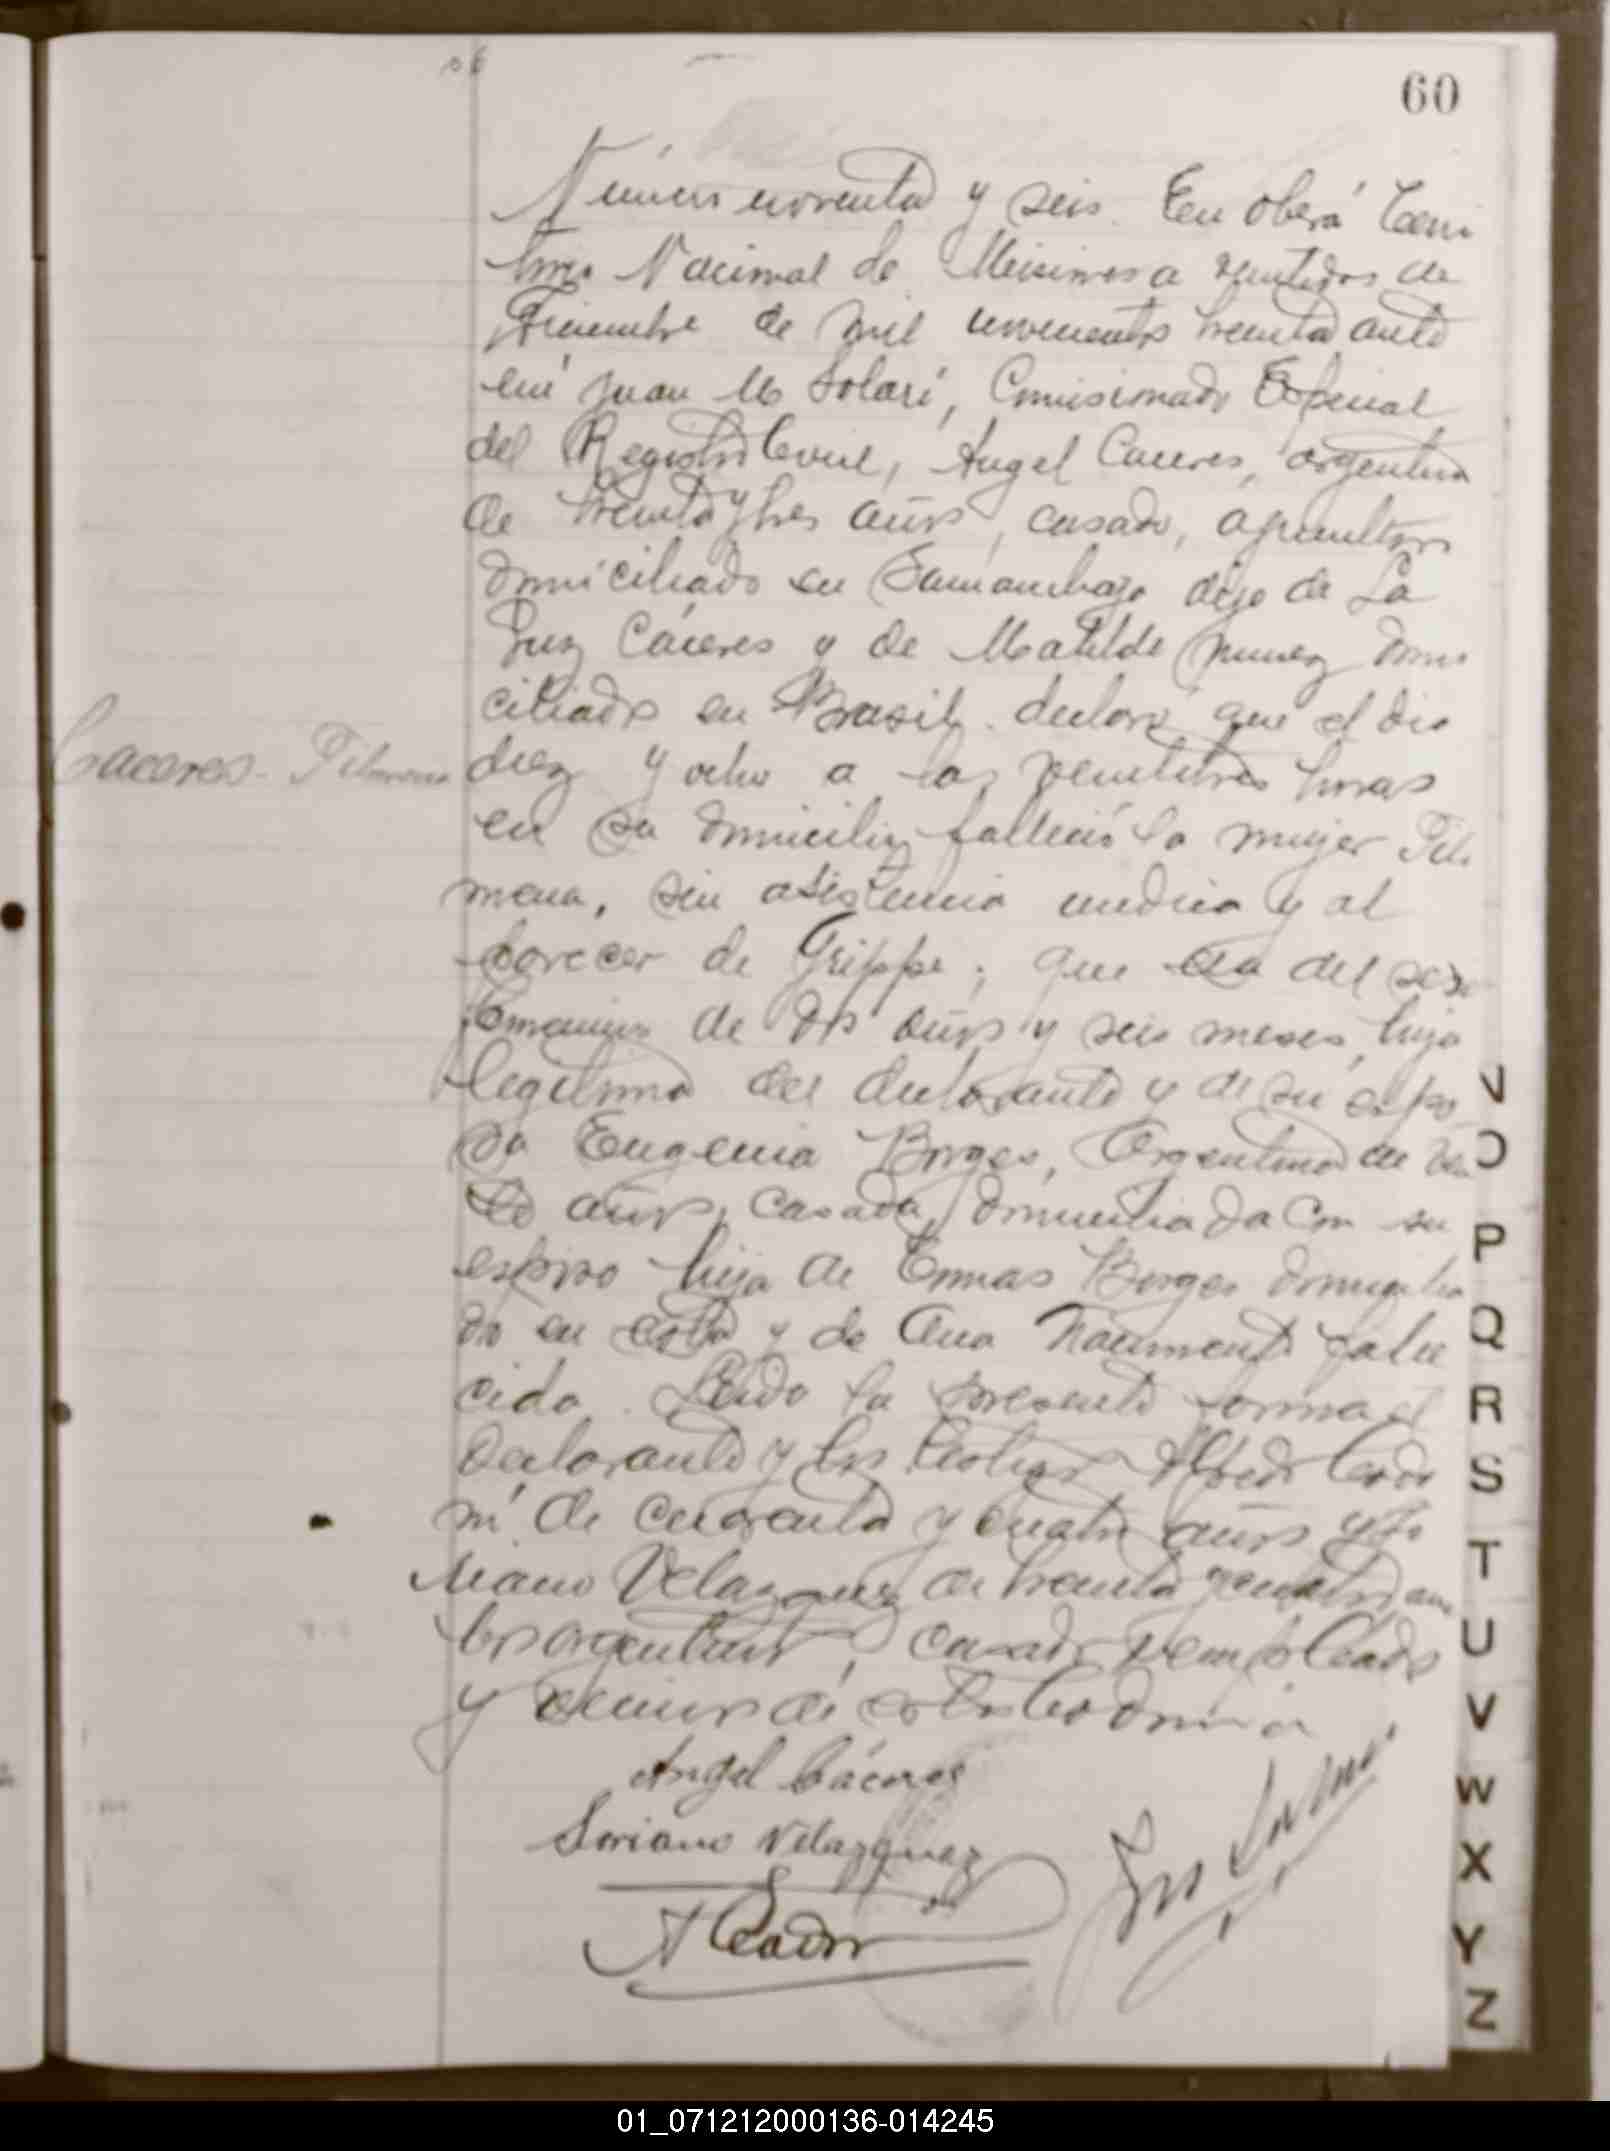 96
60
Número noventa y seis. En Oberá Terri
torio Nacional de Misiones a veintidos de
Diciembre de mil novecientos treinta ante
mi Juan M Solari, Comisionado Especial
del Registro Civil, Angel Caceres, argentino
de treinta y tres años, casado, agricultor
domiciliado en Samambaya dijo de La
Cruz Cáceres y de Matilde Nunez domi
ciliados en Brasil. declaró que el dia
Caceres - Filomena
diez y ocho a las veintitres horas
en su domicilio falleció la mujer Filo
mena, sin asistencia medica y al
parecer de Grippe; que era del sexo
femenino de dos años y seis meses, hija
legitima del declarante y de su espo
sa Eugenia Borges, Argentina de vein
te años, casada, domiciliada con su
esposo hija de Tomas Borges domicilia
do en esta y de Ana Nacimento falle
cida. Leido la presente forma el
declarante y los testigos Alfredo
ni de cuarenta y cuatro años y So
riano Velazquez de treinta y cuatro años
los argentinos, casados empleados
y vecinos de esta
Angel Cáceres
Soriano Velazquez
N
O
P
Q
R
S
T
U
V
W
X
Y
Z
01_071212000136-014245